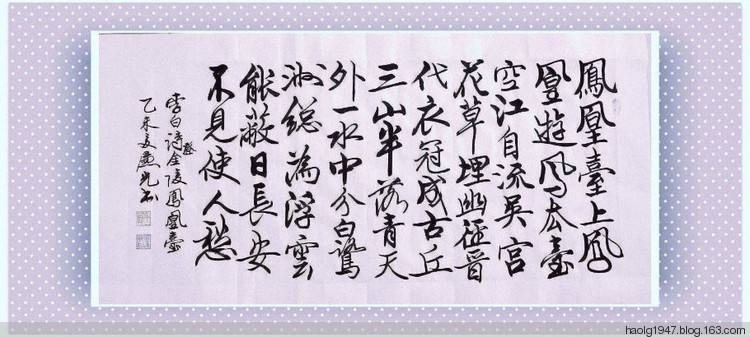 鳳凰臺上鳳
凰遊鳳去臺
空江自流吴宫
花草埋幽徑晋
代衣冠成古丘
三山半落青天
外一水中分白鷺
洲総為浮雲
能蔽日長安
不見使人愁
李白詩登金陵鳳凰臺
乙未夏
haolg1947.blog.163.com